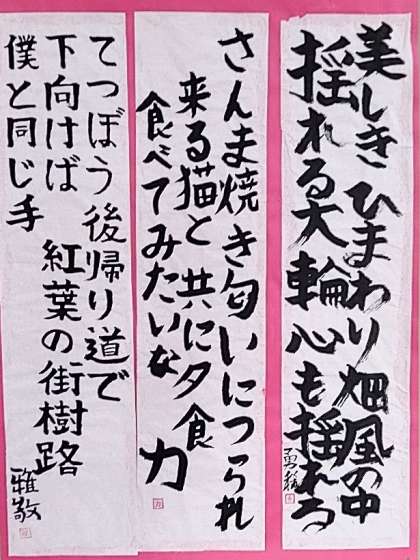 美しきひまわり畑風の中
揺れる大輪心も揺れる
さんま焼き匂いにつられ
来る猫と共に夕食
食べてみたいな
力
てつぼう後帰り道で
下向けば紅葉の街樹路
僕と同じ手
雅敬